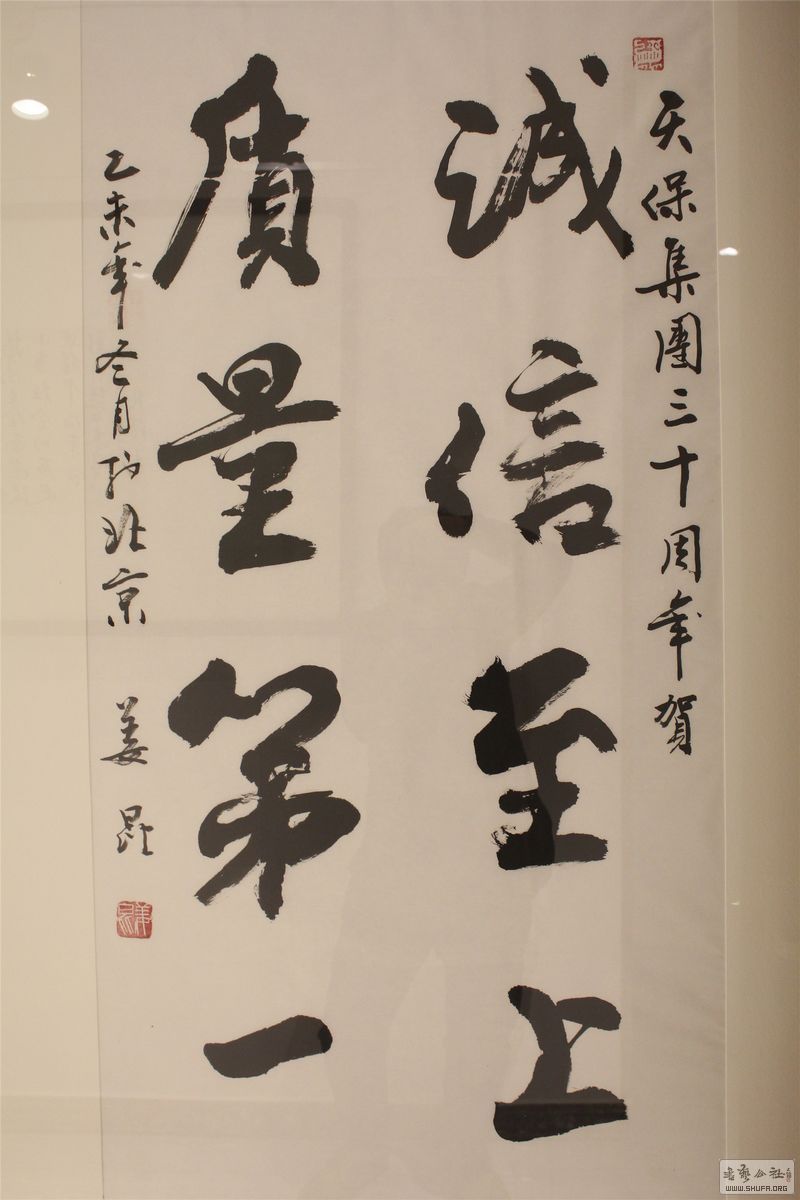 天保集團三十周年賀
誠信至上
質量第一
乙未年冬月於北京 姜昆
書藝公社
WWW.SHUFA.ORG